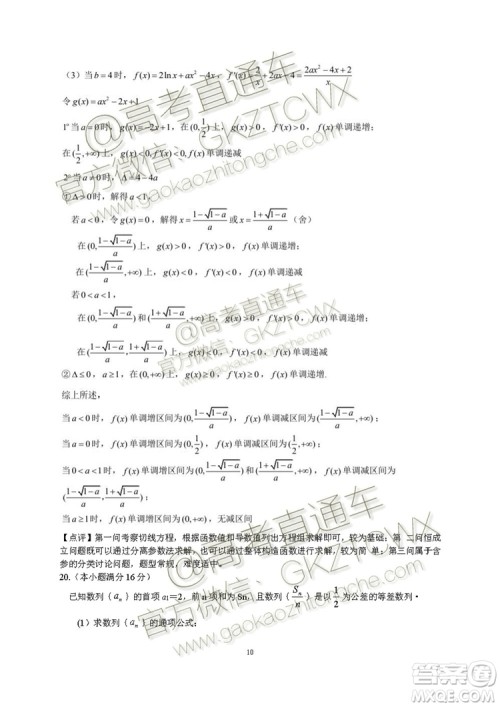 （3）当 b=4 时，f(x)=2lnx+ax²-4x，f'(x)=2/x+2ax-4=(2ax²-4x+2)/x
令 g(x)=ax²-2x+1
1° 当 a=0 时，g(x)=-2x+1，在(0,1/2)上，g(x)>0，f'(x)>0，f(x)单调递增；
在(1/2,+∞)上，g(x)<0, f'(x)<0, f(x)单调递减
2° 当 a≠0 时，Δ=4-4a
①Δ>0 时，解得 a<1，
若 a<0，令 g(x)=0，解得 x=(1-√(1-a))/a 或 x=(1+√(1-a))/a（舍）
在(0,(1-√(1-a))/a)上，g(x)>0，f'(x)>0，f(x)单调递增；
在((1-√(1-a))/a,+∞)上，g(x)<0，f'(x)<0，f(x)单调递减
若 0<a<1，
在(0,(1-√(1-a))/a)和((1+√(1-a))/a,+∞)上，g(x)>0，f'(x)>0，f(x)单调递增；
在((1-√(1-a))/a,(1+√(1-a))/a)上，g(x)<0，f'(x)<0，f(x)单调递减
②Δ≤0，a≥1，在(0,+∞)上，g(x)>0，f'(x)>0，f(x)单调递增.
综上所述，
当 a<0 时，f(x)单调增区间为(0,(1-√(1-a))/a)，f(x)单调减区间为((1-√(1-a))/a,+∞)；
当 a=0 时，f(x)单调增区间为(0,1/2)，f(x)单调减区间为(1/2,+∞)；
当 0<a<1 时，f(x)单调增区间为(0,(1-√(1-a))/a)和((1+√(1-a))/a,+∞)，f(x)单调减区间为
((1-√(1-a))/a,(1+√(1-a))/a)；
当 a≥1 时，f(x)单调增区间为(0,+∞)，无减区间
【点评】第一问考察切线方程，根据函数值和导数值列出方程组求解即可，较为基础；第 二问恒成
立问题既可以通过分离参数法求解，也可以通过整体构造函数进行求解，较为简 单；第三问属于含
参的分类讨论问题，题型常规，难度适中。
20.（本小题满分 16 分）
已知数列（aₙ）的首项 a₁=2，前 n 项和为 Sn，且数列（Sₙ/n）是以1/2为公差的等差数列·
（1）求数列（aₙ）的通项公式；
10
@高考直通车
官方微信：GKZTCWX
www.gaokaozhitongche.com
@高考直通车
官方微信：GKZTCWX
www.gaokaozhitongche.com
@高考直通车
官方微信：GKZTCWX
www.gaokaozhitongche.com
答案圈
MXQE.COM